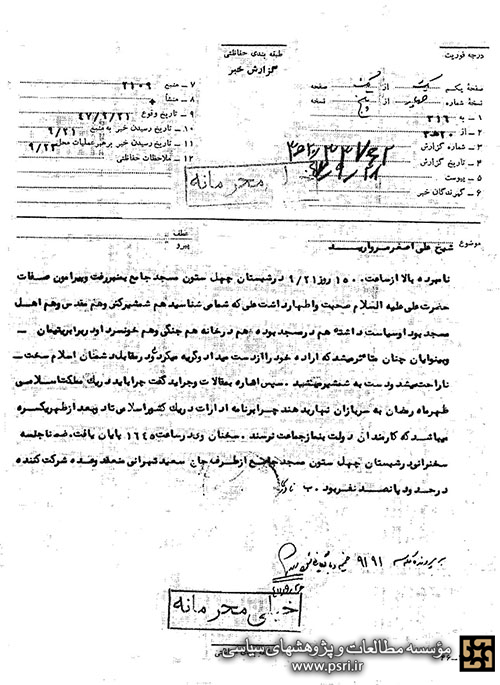 طبقه بندی حفاظتی
گزارش خبر
درجه فوریت
صفحه یکم از صفحه
نسخه شماره از نسخه
۱ – به ۳۱۶
۲ – از
۳ – شماره گزارش
۴ – تاریخ گزارش
۵ – پیوست
۶ – گیرندگان خبر
۷ – منبع ۲۱۰۹
۸ – منشأ
۹ – تاریخ وقوع ۴۷/۹/۲۱
۱۰ – تاریخ رسیدن خبر به منبع ۹/۲۱
۱۱ – تاریخ رسیدن خبر برهبر عملیات محل ۹/۲۳
۱۲ – ملاحظات حفاظتی
محرمانه
موضوع شیخ علی اصغر مروارید
عطف
پیرو
نامبرده بالا از ساعت ۱۵۰۰ روز ۹/۲۱ در شبستان چهل ستون مسجد جامع بمنبر رفت و پیرامون صفات
حضرت علی علیه السلام صحبت و اظهار داشت علی که شما می شناسید هم شمشیر کش و هم مقدس و هم اهل
مسجد بود او سیاست داشته هم در مسجد بوده هم در خانه هم جنگی و هم خونسرد او در برابر یتیمان
و بینوایان چنان متأثر میشد که اراده خود را از دست میداد و گریه میکرد و در مقابل دشمنان اسلام سخت
ناراحت میشد و دست به شمشیر میشد. سپس اشاره بمقالات و جراید گفت چرا باید در یک مملکت اسلامی
ظهر ماه رمضان به سربازان نهار بدهند چرا برنامه ادارات در یک کشور اسلامی تا دو بعد از ظهر یکسره
میباشد که کارمندان دولت بنماز جماعت نرسند. سخنان وی در ساعت ۱۶۴۵ پایان یافت. ضمنا جلسه
سخنرانی در شبستان چهل ستون مسجد جامع از طرف حاج سعید تهرانی منعقد و عده شرکت کننده
در حدود پانصد نفر بود.
خیلی محرمانه
مؤسسه مطالعات و پژوهشهای سیاسی
www.psri.ir